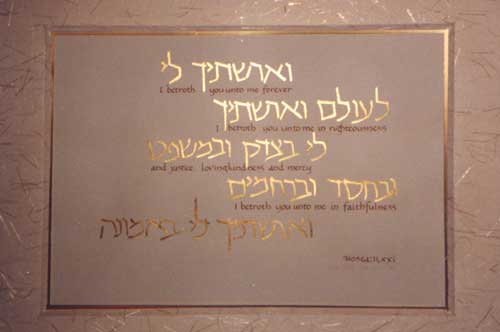 וארשתיך לי
I betroth you unto me forever
לעולם וארשתיך
I betroth you unto me in righteousness
לי בצדק ובמשפט
and justice lovingkindness and mercy
ובחסד וברחמים
I betroth you unto me in faithfulness
וארשתיך לי באמונה
HOSEA:II,xxi